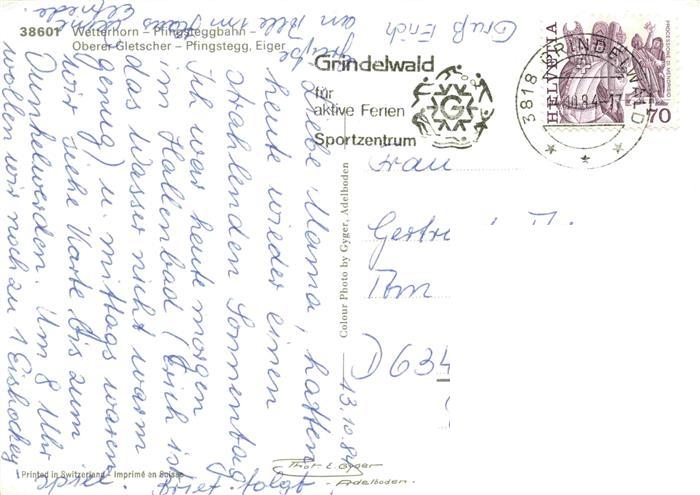 38601 Wetterhorn – Pfingsteggbahn –
Oberer Gletscher – Pfingstegg, Eiger
Grindelwald
für
aktive Ferien
Sportzentrum
G
3818 GRINDELWALD
HELVETIA
70
Frau
Am
D 634
13.10.84
Liebe Mama, hatten
heute wieder einen
strahlenden Sonnentag
Ich war heute morgen
im Hallenbad (Erich ist
das Wasser nicht warm
genug) u. mittags waren
wir siehe Karte bis zum
Dunkelwerden. Um 8 Uhr
wollen wir noch zu 1 Eishockey
Brief folgt
Grüße
an alle im Haus
Gruß Erich
Elfriede
Colour Photo by Gyger, Adelboden
Printed in Switzerland – Imprimé en Suisse
Phot. E. Gyger
Adelboden.